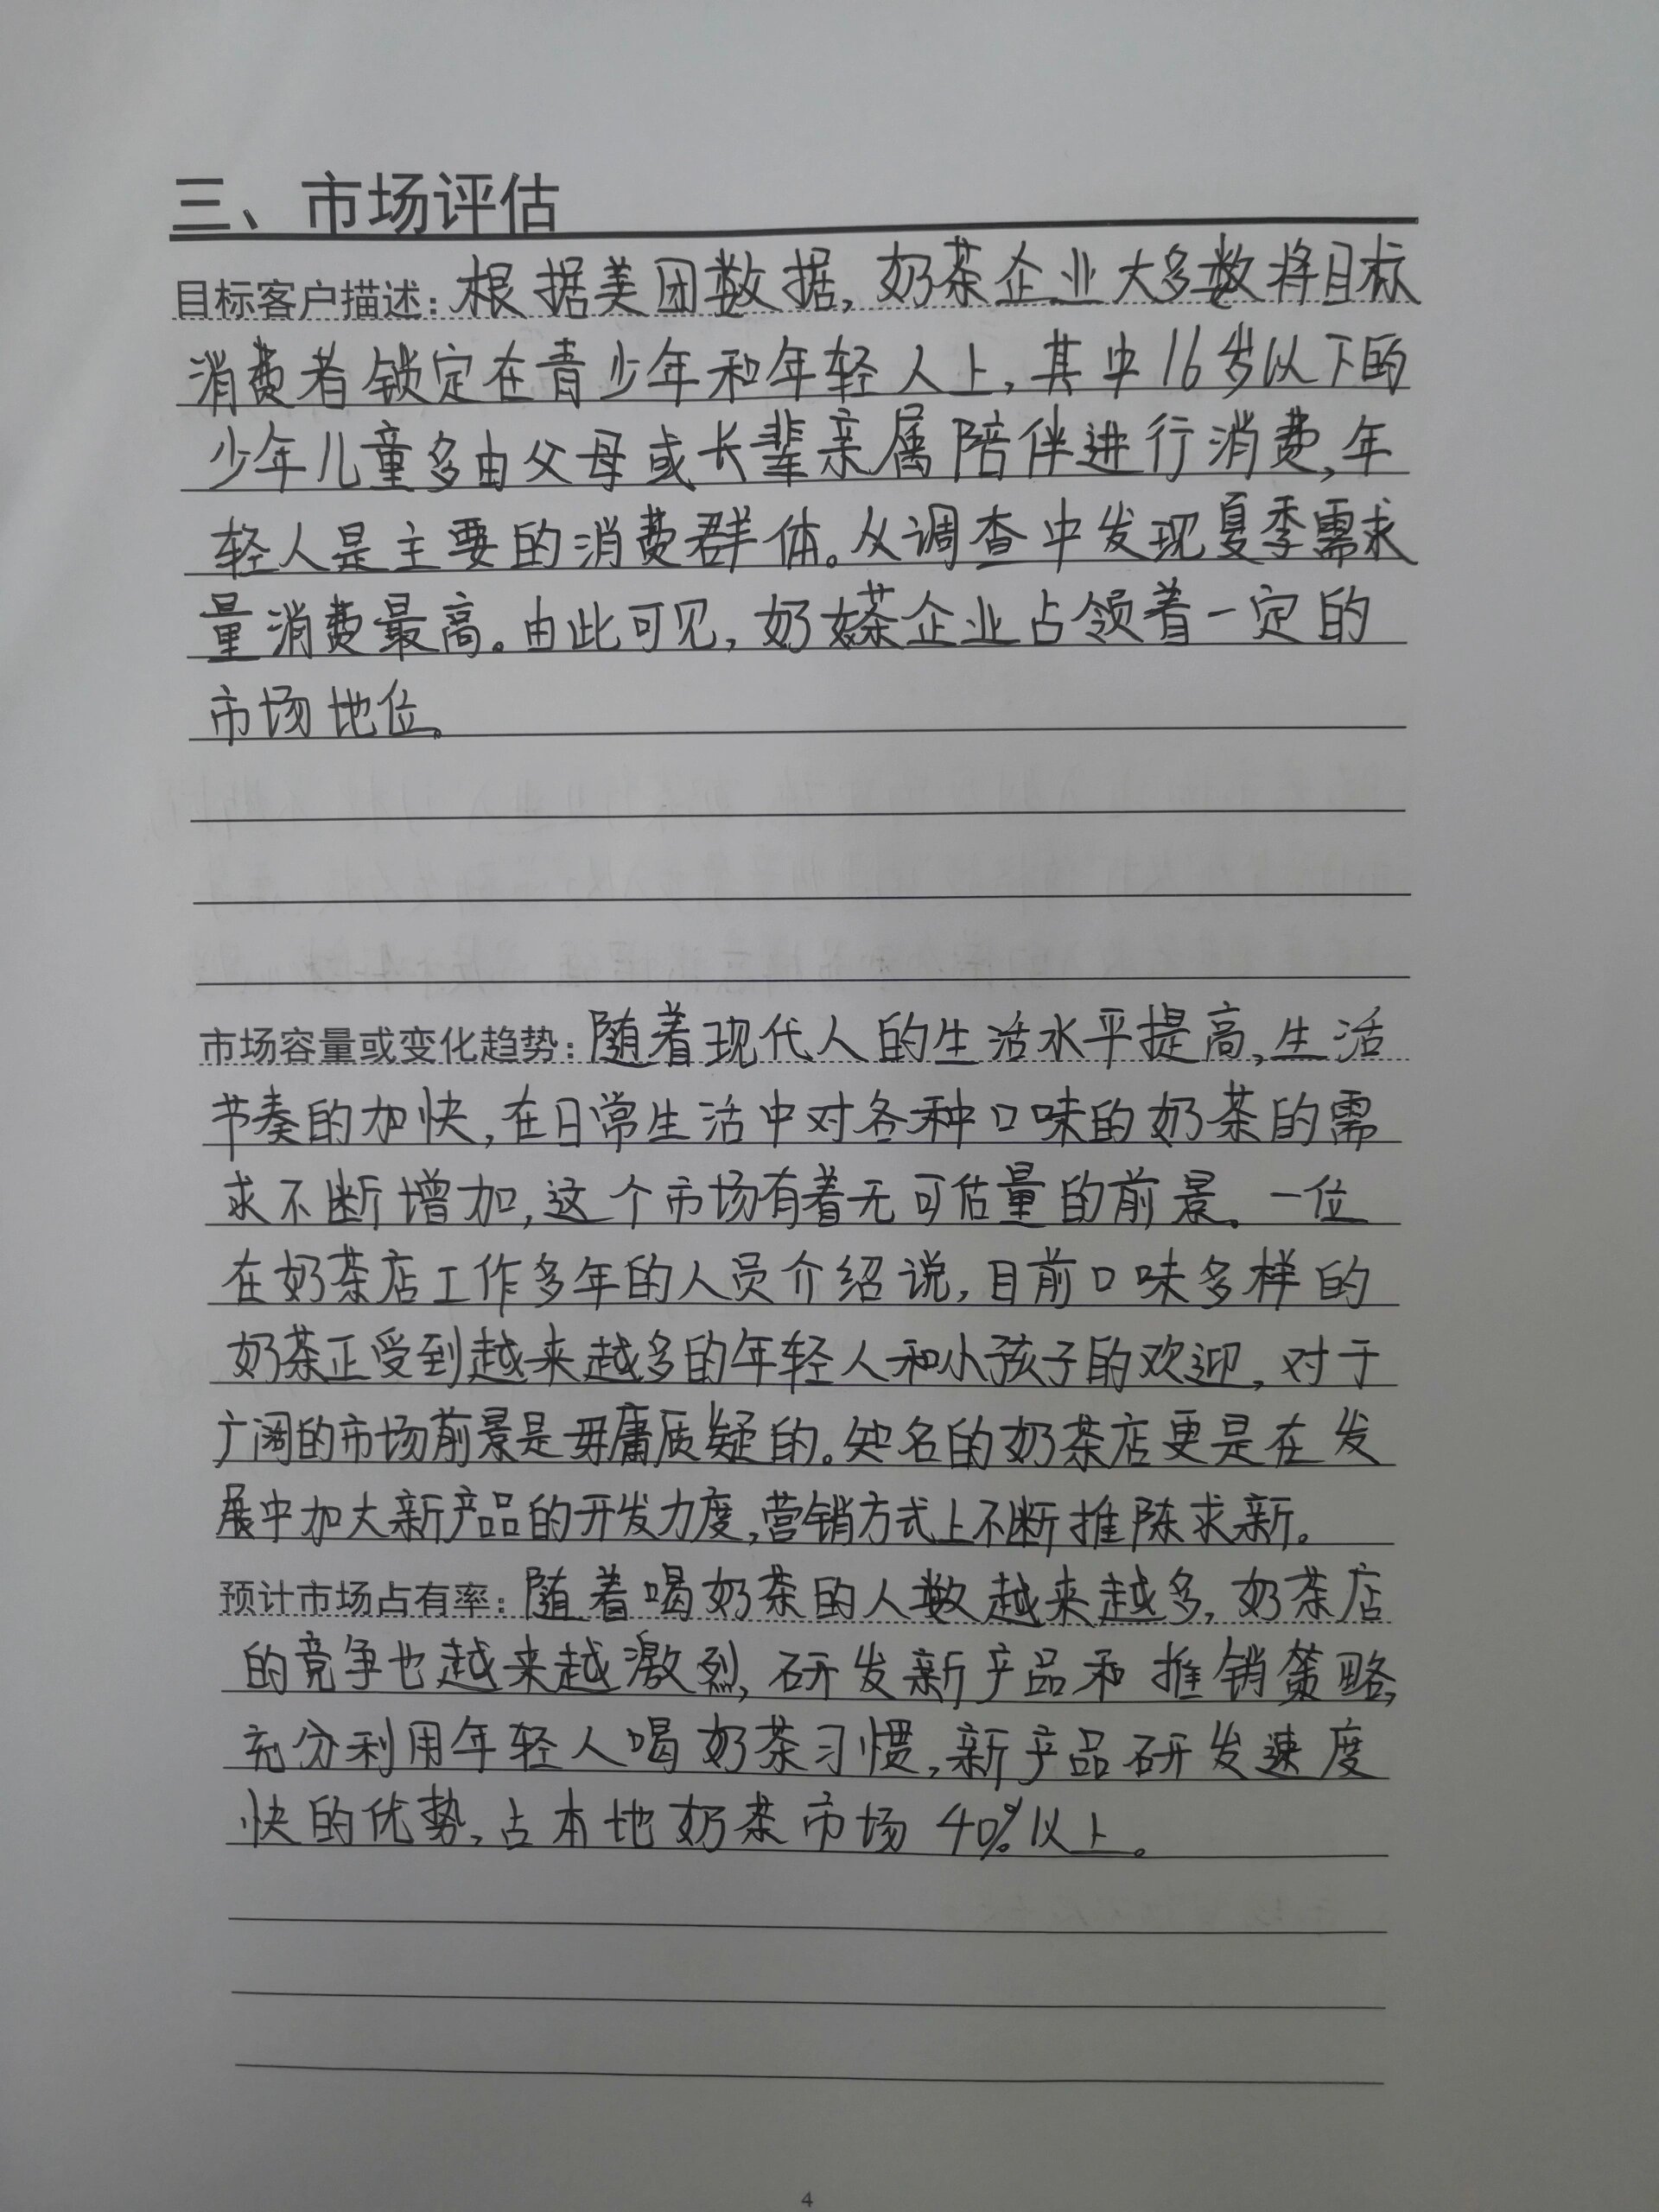 三、市场评估
目标客户描述：根据美团数据，奶茶企业大多数将目标
消费者锁定在青少年和年轻人上，其中16岁以下的
少年儿童多由父母或长辈亲属陪伴进行消费，年
轻人是主要的消费群体。从调查中发现夏季需求
量消费最高。由此可见，奶茶企业占领着一定的
市场地位。
市场容量或变化趋势：随着现代人的生活水平提高，生活
节奏的加快，在日常生活中对各种口味的奶茶的需
求不断增加，这个市场有着无可估量的前景。一位
在奶茶店工作多年的人员介绍说，目前口味多样的
奶茶正受到越来越多的年轻人和小孩子的欢迎，对于
广阔的市场前景是毋庸质疑的。知名的奶茶店更是在发
展中加大新产品的开发力度，营销方式上不断推陈求新。
预计市场占有率：随着喝奶茶的人数越来越多，奶茶店
的竞争也越来越激烈，研发新产品和推销策略，
充分利用年轻人喝奶茶习惯，新产品研发速度
快的优势，占本地奶茶市场40%以上。
4